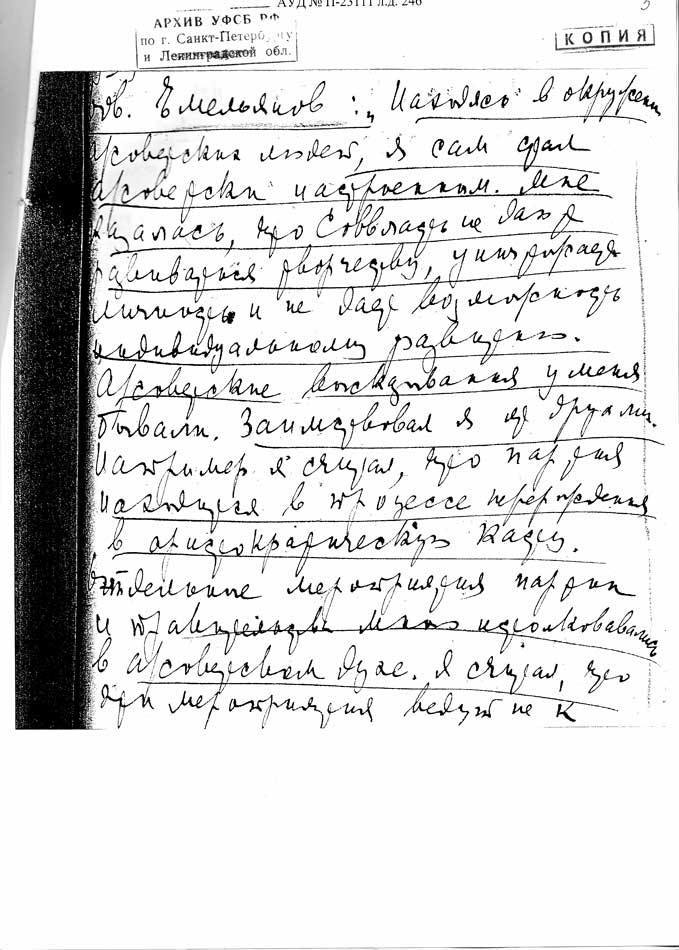 АУД № П-23111 л.д. 246
5
АРХИВ УФСБ РФ
по г. Санкт-Петербургу
и Ленинградской обл.
КОПИЯ
Емельянов: „Находясь в окружении
а/советских людей, я сам стал
а/советски настроенным. Мне
казалась, что Соввласть не дает
развиваться творчеству, уничтожает
личность и не дает возможность
индивидуальному развитию.
А/советские высказывания у меня
бывали. Заимствовал я от других.
Например я считал, что партия
находится в процессе перерождения
в аристократическую касту.
Отдельные мероприятия партии
и правительства мною истолковывались
в а/советском духе. Я считал, что
эти мероприятия ведут не к